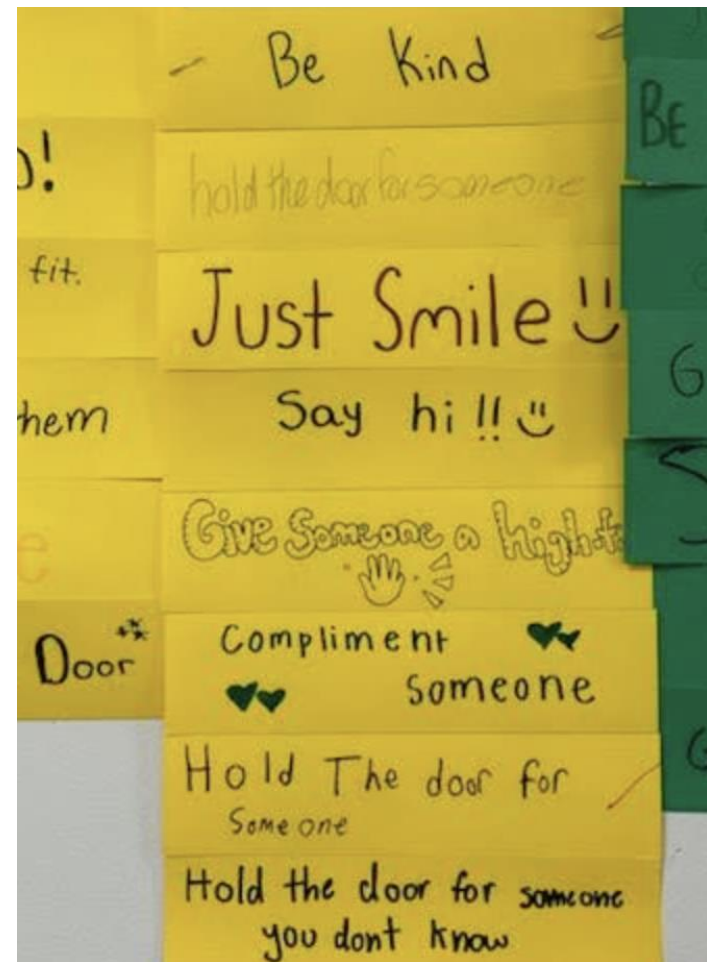 Be Kind
hold the door for someone
Just Smile
Say hi!!
Give Someone a high-f
Compliment
Someone
Hold The door for
Someone
Hold the door for someone
you dont know
fit.
hem
Door
BE
G